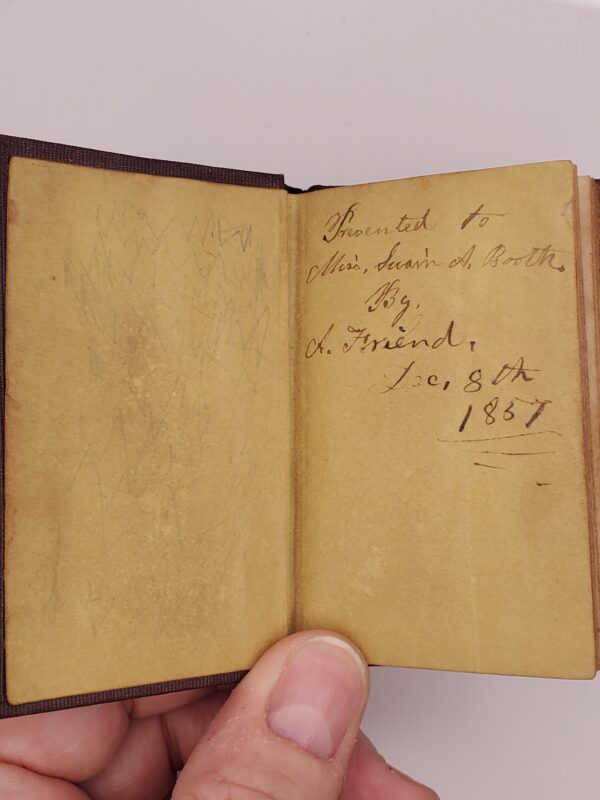 Presented to
Miss. Susan A. Booth.
By.
A. Friend.
Dec, 8th
1857